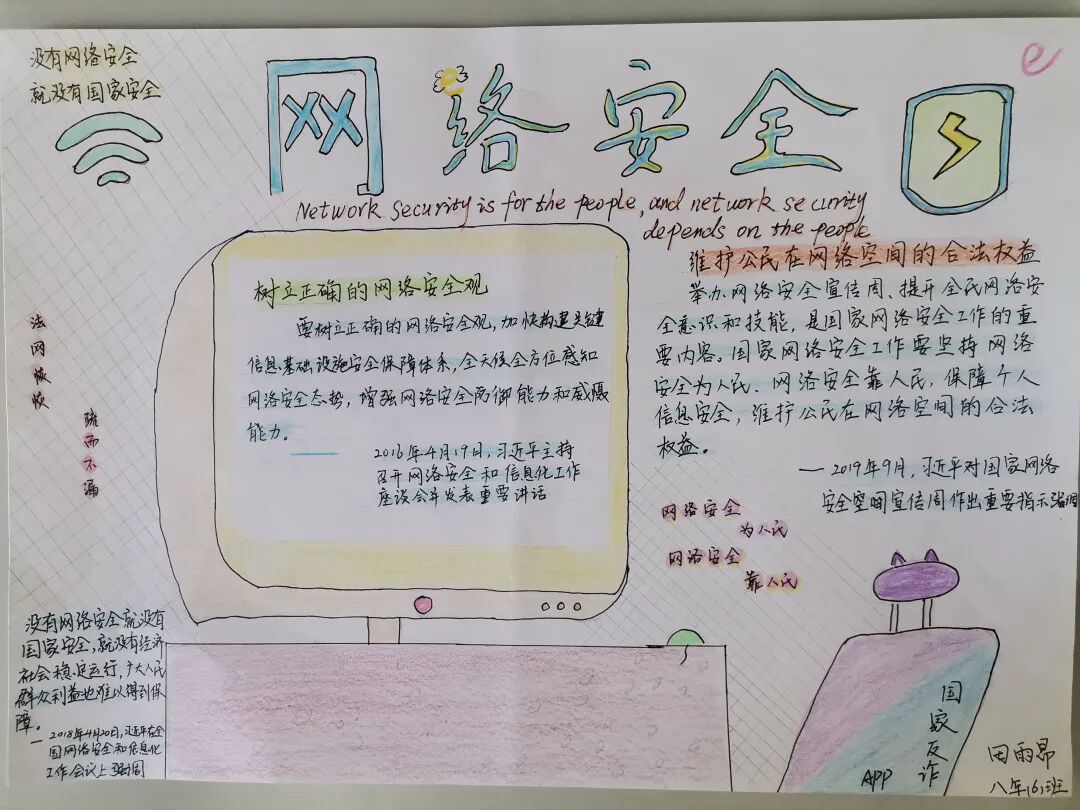 没有网络安全
就没有国家安全
网络安全
e
e
Network security is for the people, and network security
depends on the people
维护公民在网络空间的合法权益
举办网络安全宣传周、提升全民网络安
全意识和技能,是国家网络安全工作的重
要内容。国家网络安全工作要坚持网络
安全为人民、网络安全靠人民,保障个人
信息安全,维护公民在网络空间的合法
权益。
—2019年9月,习近平对国家网络
安全空间宣传周作出重要指示强调
树立正确的网络安全观
要树立正确的网络安全观,加快构建关键
信息基础设施安全保障体系,全天候全方位感知
网络安全态势,增强网络安全防御能力和威慑
能力。
——2016年4月19日,习近平主持
召开网络安全和信息化工作
座谈会并发表重要讲话
法网恢恢
疏而不漏
网络安全
为人民
网络安全
靠人民
没有网络安全就没有
国家安全,就没有经济
社会稳定运行,广大人民
群众利益也难以得到保
障。
—2018年4月20日,习近平在全
国网络安全和信息化
工作会议上强调
国家反诈
APP
田雨昂
八年(6)班